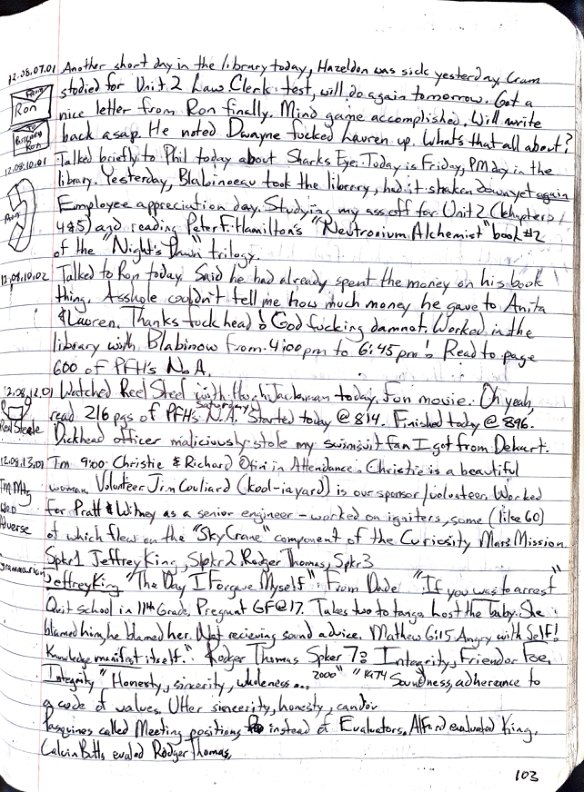 12.08.07.01 Another short day in the library today, Hazeldon was sick yesterday. Cram
Ron
studied for Unit 2 Law Clerk test, will do again tomorrow. Got a
Ron
nice letter from Ron finally. Mind game accomplished. Will write
back asap. He noted Dwayne fucked Lauren up. Whats that all about?
12.08.10.01 Talked briefly to Phil today about Sharks Eye. Today is Friday, PM day in the
library. Yesterday, Blabinoeau took the library, had it shaken down yet again
Ron
Employee appreciation day. Studying my ass off for Unit 2 (Chapters
4&5) and reading Peter F. Hamilton's "Neutronium Alchemist" book #2
of the "Night's Dawn" trilogy.
12.08.10.02 Talked to Ron today. Said he had already spent the money on his book
thing. Asshole couldn't tell me how much money he gave to Anita
& Lauren. Thanks fuck head! God fucking damnot. Worked in the
library with Blabinow from 4:00pm to 6:45pm! Read to page
600 of PFH's N.A.
12.08.12.01 Watched Reel Steel with Hugh Jackaman today. Fun movie. Oh yeah,
read 216 pgs of PFH's N.A. Saturday. Started today @ 814. Finished today @ 896.
Real Steele
Dickhead officer maliciously stole my swimsuit fan I got from DeHart.
12.08.13.01 Tm 9:00 Christie & Richard in Attendance. Christie is a beautiful
woman. Volunteer Jim Couliard (kool-iayard) is our sponsor/volunteer. Worked
Tm Mtg
for Pratt & Witney as a senior engineer - worked on igniters, some (like 60)
Adverse
of which flew on the "Sky Crane" component of the Curiosity Mars Mission.
Spkr 1 Jeffrey King, Spkr 2 Rodger Thomas, Spkr 3
grammarian
Jeffrey King "The Day I Forgave Myself". From Dade "If you was to arrest"
Quit school in 11th Grade. Pregnant GF @ 17. Takes two to tango. Lost the baby. She
blamed him, he blamed her. Not recieving sound advice. Mathew 6:15 Angry with Self!
Knowledge manifist itself." Rodger Thomas Spker 7: Integrity, Friend or Foe.
Integrity "Honesty, sincerity, wholeness... 2000" "1974 Soundness, adherence to
a code of values. Utter sincerity, honesty, candor
Pasquines called Meeting positions instead of Evaluators. Alford evaluated King,
Calvin Butts evaled Rodger Thomas.
103